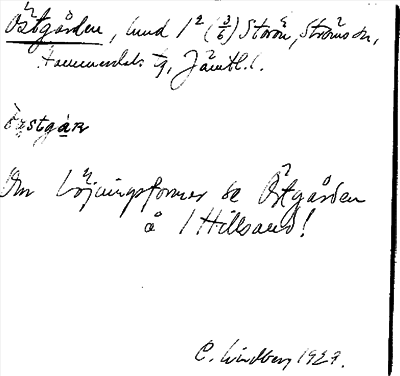 Östgården, hmd 1² (3/6) Storön, Ströms sn,
Hammerdals tg, Jämtl. l.
östgàṇ
Om böjningsformer se Östgården
å 1 Hillsand!
C. Lindberg 1927.